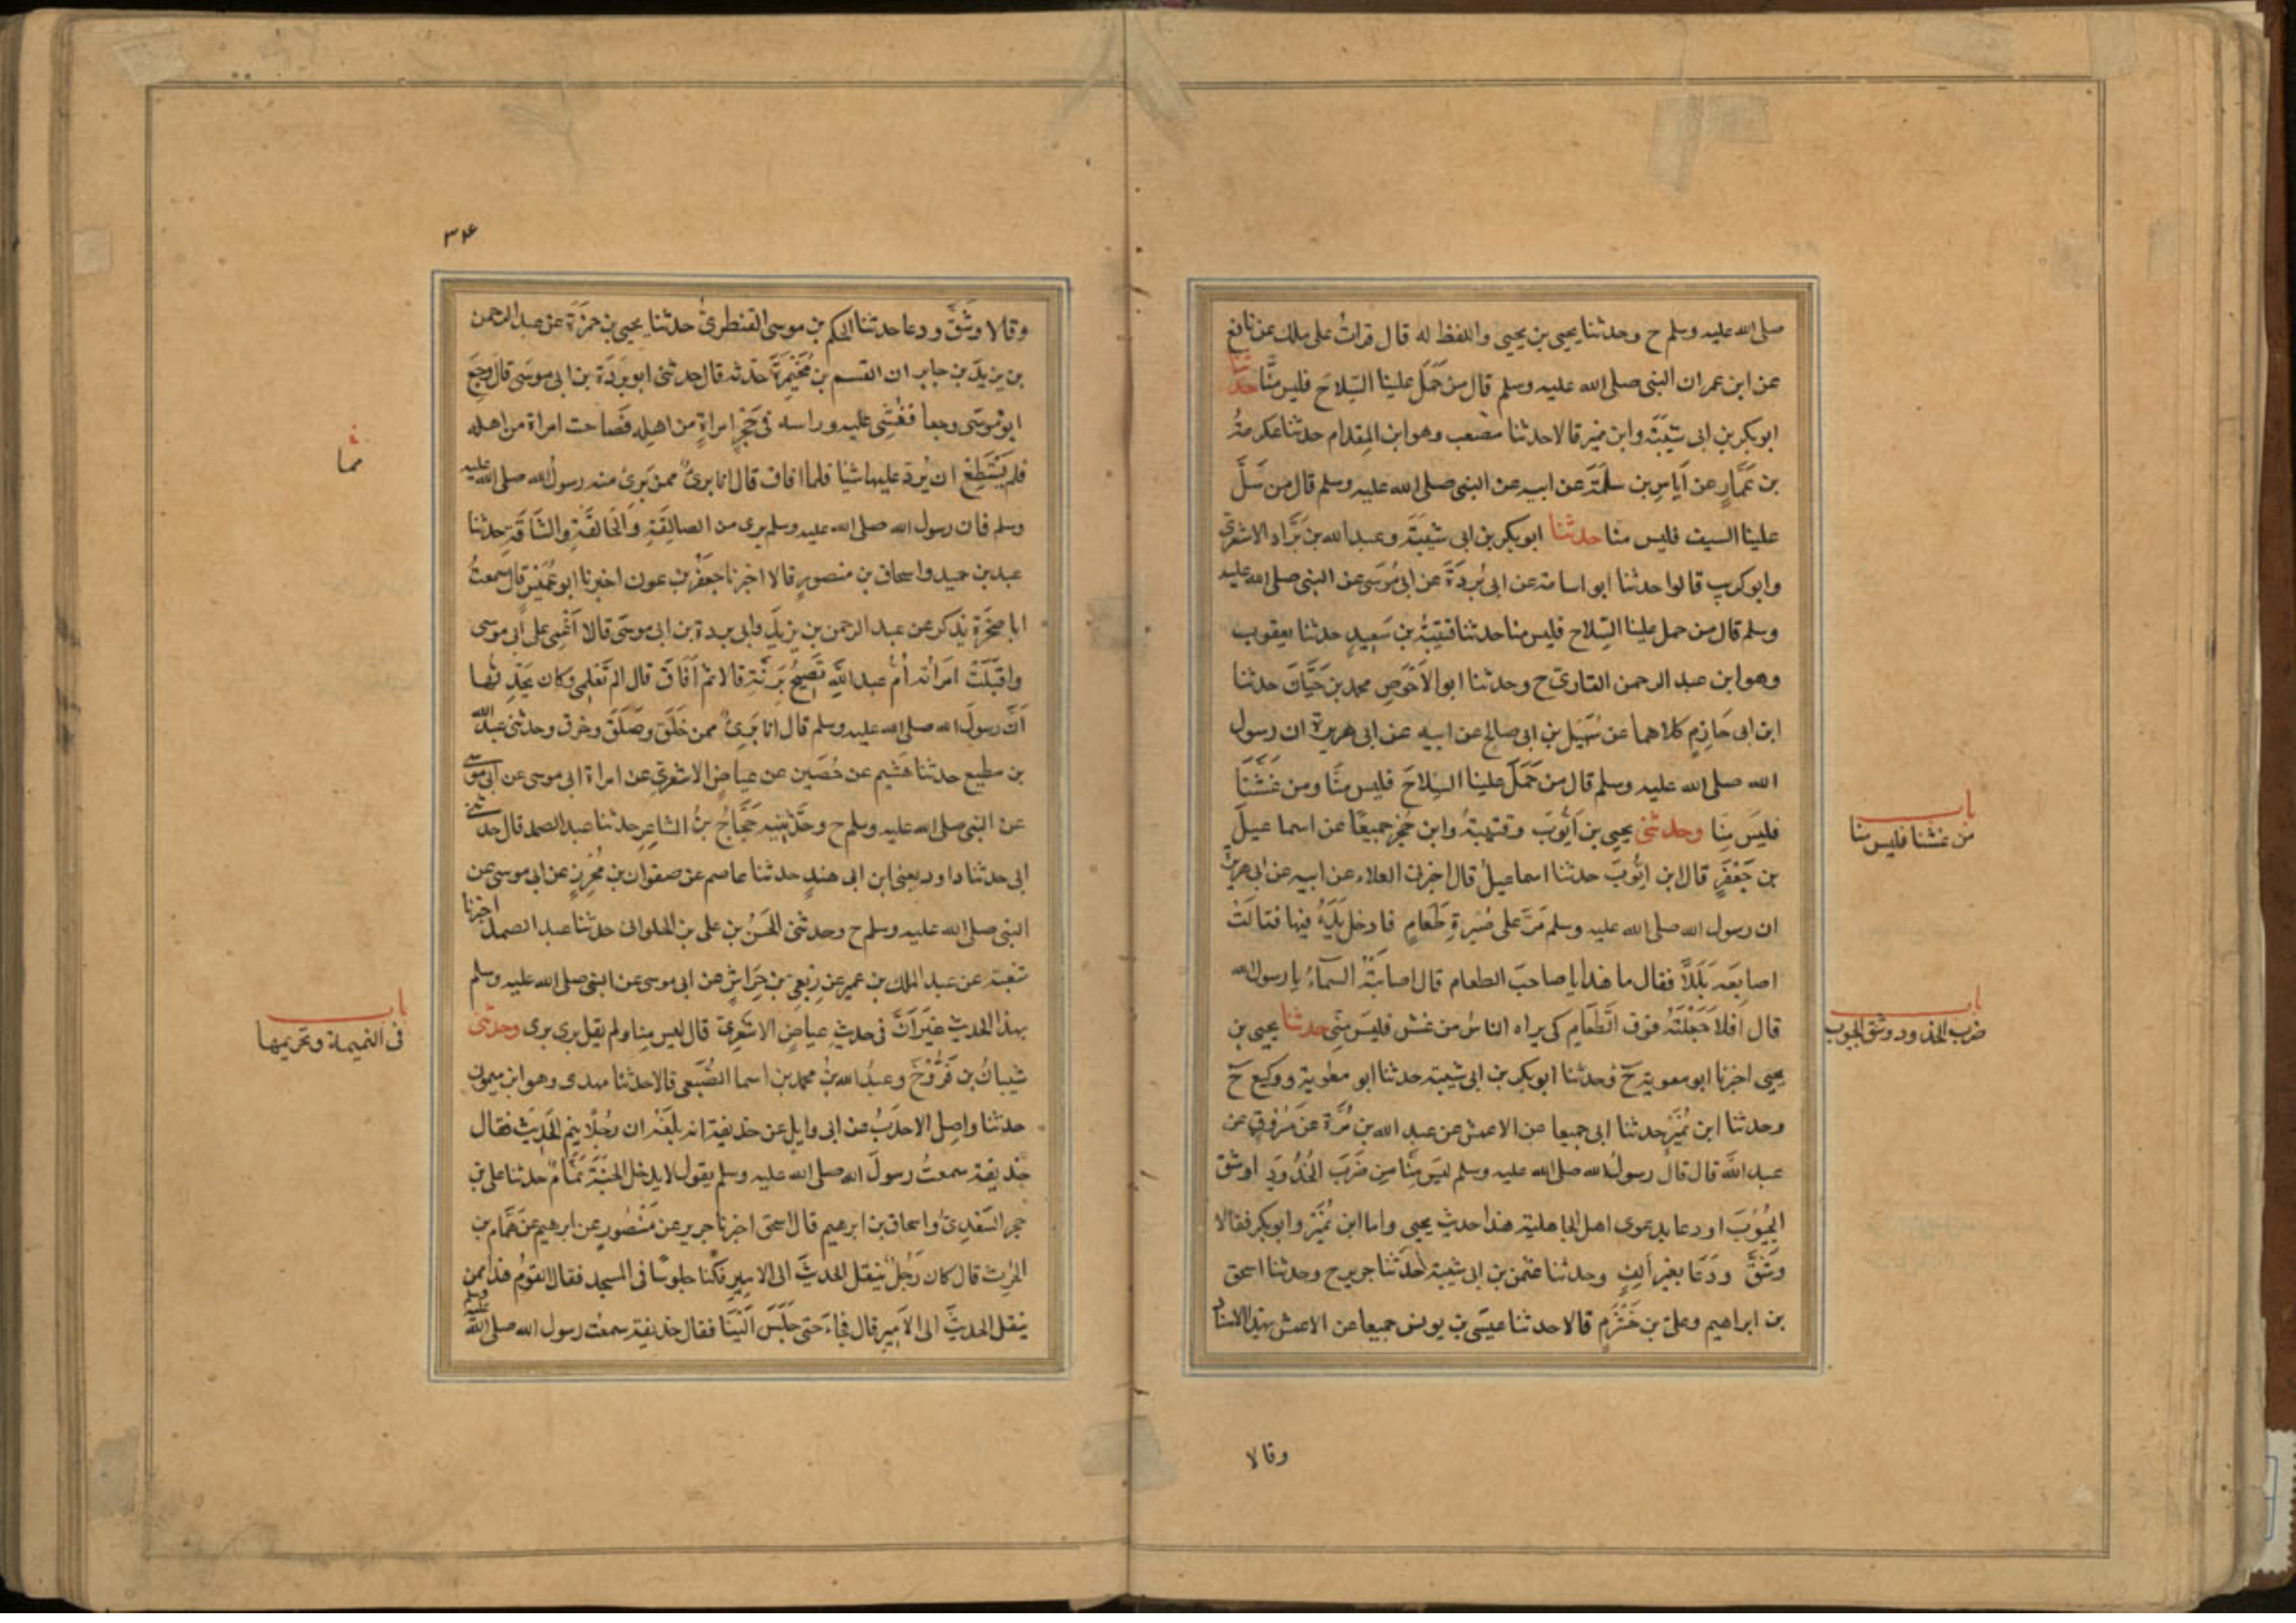 صلى الله عليه وسلم ح وحدثنا يحيى بن يحيى واللفظ له قال قرات على ملك عن نافع
عن ابن عمر ان النبى صلى الله عليه وسلم قال من حَمَلَ علينا السِّلاحَ فليس مِنَّا حدثنا
ابوبكر بن ابى شَيْبَةَ وابن نمير قالا حدثنا مصعب وهو ابن المِقدام حدثنا عكرمةُ
بن عَمَّارٍ عن اَياسِ بن سَلَمَةَ عن ابيه عن النبى صلى الله عليه وسلم قال من سَلَّ
علينا السيف فليس منا حدثنا ابوبكر بن ابى شيبَةَ وعبد الله بن بَرَّاد الاشعرى
وابو كريب قالوا حدثنا ابو اسامة عن ابى بُردَةَ عن ابى مُوسَى عن النبى صلى الله عليه
وسلم قال من حمل علينا السِّلاح فليس منا حدثنا قتيبَةُ بن سَعيدٍ حدثنا يعقوب
وهو ابن عبد الرحمن القارىّ ح وحدثنا ابو الاَحْوَصِ محمد بن حَيَّانَ حدثنا
ابن ابى حَازِمٍ كلاهما عن سُهَيْل بن ابى صالح عن ابيه عن ابى هريرة ان رسول
الله صلى الله عليه وسلم قال من حَمَلَ علينا السِّلاحَ فليس مِنَّا ومن غَشَّنَا
فليَسَ مِنا وحدثنى يحيى بن اَيُّوبَ وقتيبةُ وابن حُجْر جميعًا عن اسماعيلَ
باب
من غشنا فليس منا
بن جَعْفَرٍ قال ابن ايُّوبَ حدثنا اسماعيلُ قال اخبرنى العلاء عن ابيه عن ابى هريرة
ان رسول الله صلى الله عليه وسلم مَرَّ على صُبْرةِ طَعامٍ فادخل يَدَهُ فيها فنالَتْ
اصابِعَه بَلَلاً فقال ما هذا يا صاحبَ الطعام قال اصابَتْهُ السماءُ يا رسول الله
قال اَفلاَ جَعَلْتَهُ فوق الطَّعَامِ كى يراه الناسُ من غش فليس مِنِّى حدثنا يحيى بن
باب
ضرب الخدود وشق الجيوب
يحيى اخبرنا ابو معوية ح وحدثنا ابوبكر بن ابى شيبة حدثنا ابو معوية ووكيع ح
وحدثنا ابن نُمَيْرٍ حدثنا ابى جميعا عن الاعمش عن عبد الله بن مُرَّة عن مَسْروقٍ عن
عبد الله قال قال رسولُ الله صلى الله عليه وسلم ليسَ مِنَّا مَن ضَرَبَ الخُدُودَ اوشقّ
الجُيُوبَ او دعا بدعوى اهل الجاهلية هذا حديث يحيى واما ابن نُمَيْر وابوبكر فقالا
وشَقَّ ودَعَا بغير ألِفٍ وحدثنا عثمن بن ابى شيبة حَدَّثنا جرير ح وحدثنا اسحق
بن ابراهيم وعلىّ بن خَشْرَمٍ قالا حدثنا عيسَى بن يونس جميعا عن الاعمش بهذا الاسناد
وقالا
٣٤
وقالا وشَقَّ ودعا حدثنا الحكم بن موسى القنطرىُّ حدثنا يحيى بن حمزَةَ عن عبد الرحمن
بن يزيدَ بن جابر ان القسم بن مُخَيْمِرَةَ حدثه قال حدثنى ابو بُرْدَة بن ابى موسَى قال وجِعَ
ابو موسَى وجعا فغُشِىَ عليه وراسه فى حَجْرِ امراةٍ من اهله فصاحت امراة من اهله
فلم يَسْتَطِعْ ان يُردّ عليها شيئا فلما افاق قال انا برىٌ ممن بَرِئَ منه رسولُ الله صلى الله عليه
وسلم فان رسول الله صلى الله عليه وسلم برى من الصالِقَةِ والحالقَةِ والشّاقّةِ حدثنا
عبد بن حميد واسحاق بن منصورٍ قالا اخبرنا جَعْفَرُ بن عون اخبرنا ابو عُمَيْسٍ قال سمعتُ
ابا صخرَة يذكر عن عبد الرحمن بن يزيدَ وابى بردة بن ابى موسَى قالا اُغْمِىَ على ابى موسى
واقبَلَتْ امرَاتُه اُمُّ عبد الله تَصيحُ بِرَنَّةٍ قالا ثم اَفَاقَ قال الم تَعْلَمِى وكان يحَدِّثُها
اَنَّ رسولَ الله صلى الله عليه وسلم قال انا بَرِئٌ ممن حَلَقَ وصَلَقَ وخرق وحدثنى عبد الله
بن مطيع حدثنا هشيم عن حُصَين عن عياضٍ الاشعرىِّ عن امراة ابى موسى عن ابى موسى
عن النبى صلى الله عليه وسلم ح وحَدَّثنِيه حَجَّاجُ بنُ الشاعِرِ حدثنا عبد الصمد قال حدثنى
ابى حدثنا داود يعنى ابن ابى هندٍ حدثنا عاصم عن صفوان بن مُحْرِزٍ عن ابى موسى عن
النبى صلى الله عليه وسلم ح وحدثنى الحَسَنُ بن على بن الحلوانى حدثنا عبد الصمد اخبرنا
شعبة عن عبد الملك بن عمير عن رِبعِىِّ بن حِرَاشٍ عن ابى موسى عن النبى صلى الله عليه وسلم
بهذا الحديث غيرَ اَنَّ فى حديث عياضٍ الاشعرِىِّ قال ليس مِنا ولم يقل برى برى وحدثنى
باب
فى النميمة وتحريمها
شيبانُ بن فَرُّوْخَ وعبدُ الله بنُ محمد بن اسما الضُّبَعى قالا حدثنا مهدى وهو ابن ميمون
حدثنا واصِل الاحدَبُ عن ابى وايلٍ عن حذيفة انه بلغَهُ ان رجُلًا ينِم الحدِيثَ فقال
حذيفة سمعتُ رسولَ الله صلى الله عليه وسلم يقول لا يدخل الجَنَّةَ نَمَّامٌ حدثنا على بن
حجر السَّعْدِىُّ واسحاق بن ابرهيم قال اسحق اخبرنا جرير عن مَنْصُورٍ عن ابرهيم عن هَمَّام بن
الحرث قال كان رَجُلٌ ينقل الحديثَ الى الامِيرِ فكنا جلوسًا فى المسجد فقال القومُ هذا ممن
ينقل الحديثَ الى الاَمِيرِ قال فجاءَ حتى جَلَسَ اِلَيْنَا فقال حذيفة سمعْت رسول الله صلى الله عليه وسلم